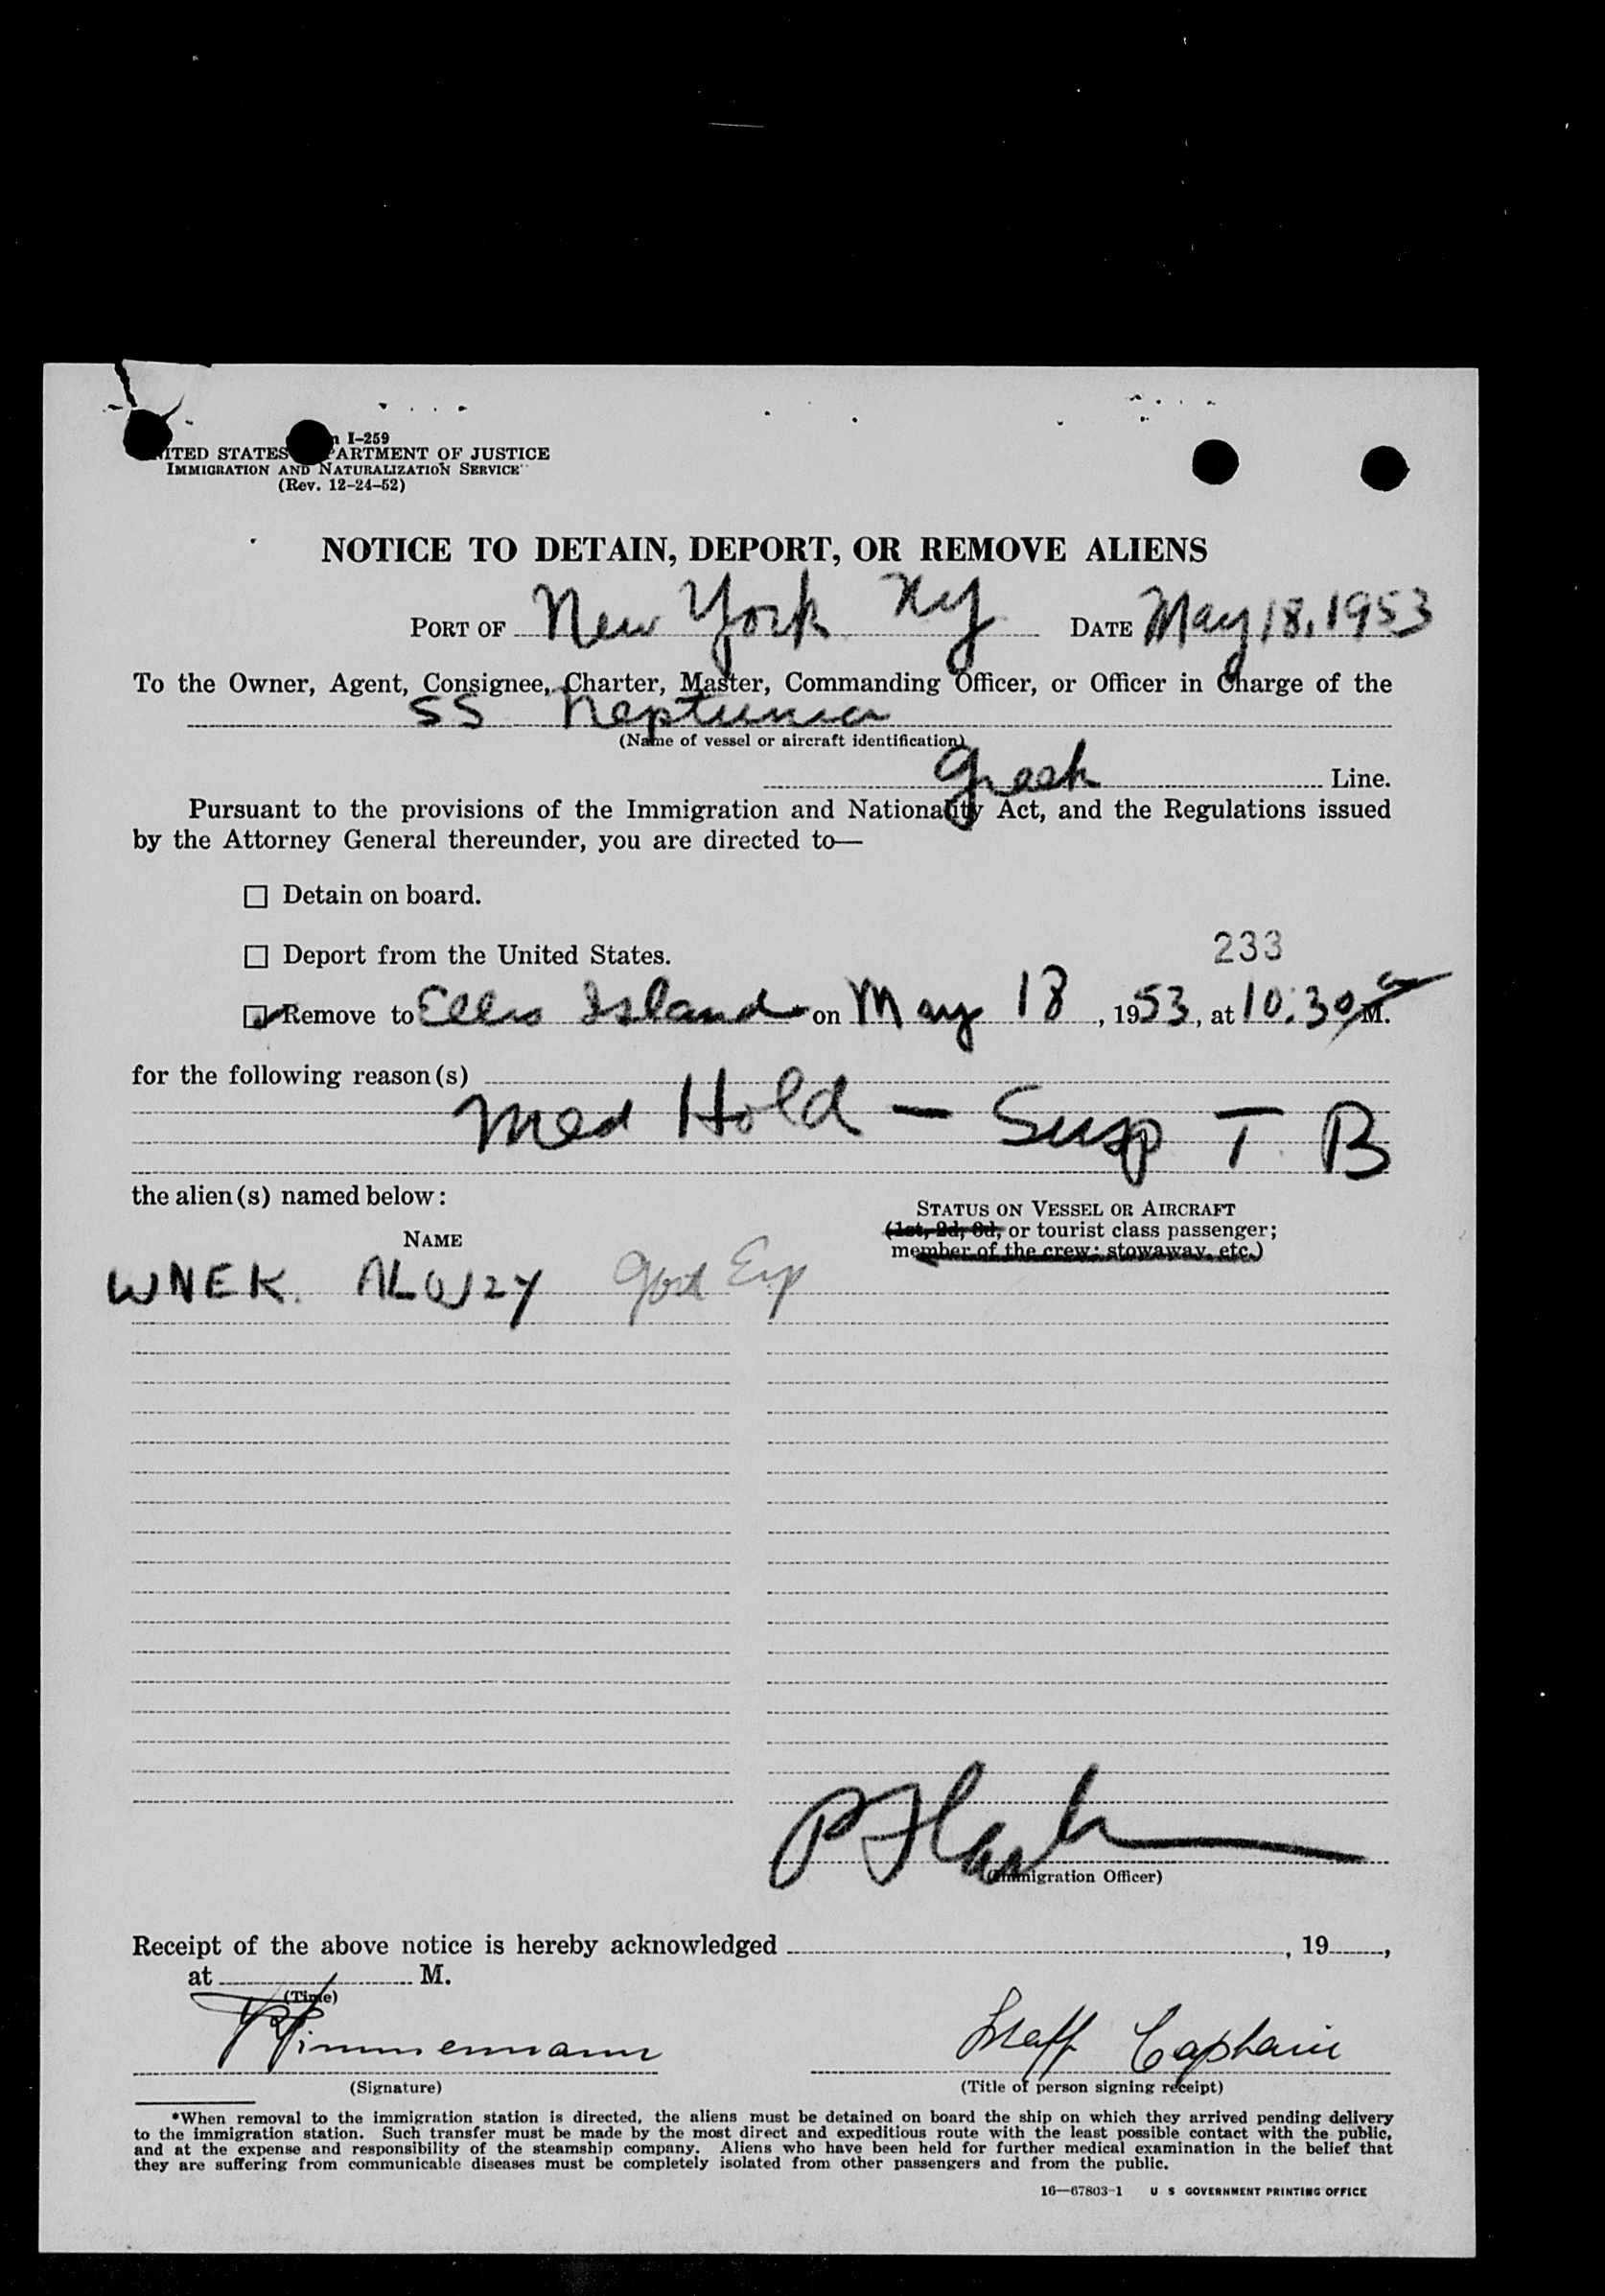 I-259
ITED STATES PARTMENT OF JUSTICE
IMMIGRATION AND NATURALIZATION SERVICE
(Rev. 12-24-52)
NOTICE TO DETAIN, DEPORT, OR REMOVE ALIENS
PORT OF New York NY DATE May 18, 1953
To the Owner, Agent, Consignee, Charter, Master, Commanding Officer, or Officer in Charge of the
SS Neptunia
(Name of vessel or aircraft identification)
Greek Line.
Pursuant to the provisions of the Immigration and Nationality Act, and the Regulations issued
by the Attorney General thereunder, you are directed to—
☐ Detain on board.
☐ Deport from the United States.
233
☑ Remove to Ellis Island on May 18, 1953, at 10:30 a M.
for the following reason(s)
Med Hold — Susp T. B
the alien(s) named below:
STATUS ON VESSEL OR AIRCRAFT
(1st, 2d, 3d, or tourist class passenger;
member of the crew; stowaway, etc.)
NAME
WNEK. ALOJZY
(Immigration Officer)
Receipt of the above notice is hereby acknowledged , 19 ,
at M.
(Time)
Zimmermann Staff Captain
(Signature) (Title of person signing receipt)
*When removal to the immigration station is directed, the aliens must be detained on board the ship on which they arrived pending delivery
to the immigration station. Such transfer must be made by the most direct and expeditious route with the least possible contact with the public,
and at the expense and responsibility of the steamship company. Aliens who have been held for further medical examination in the belief that
they are suffering from communicable diseases must be completely isolated from other passengers and from the public.
16—67803-1 U S GOVERNMENT PRINTING OFFICE